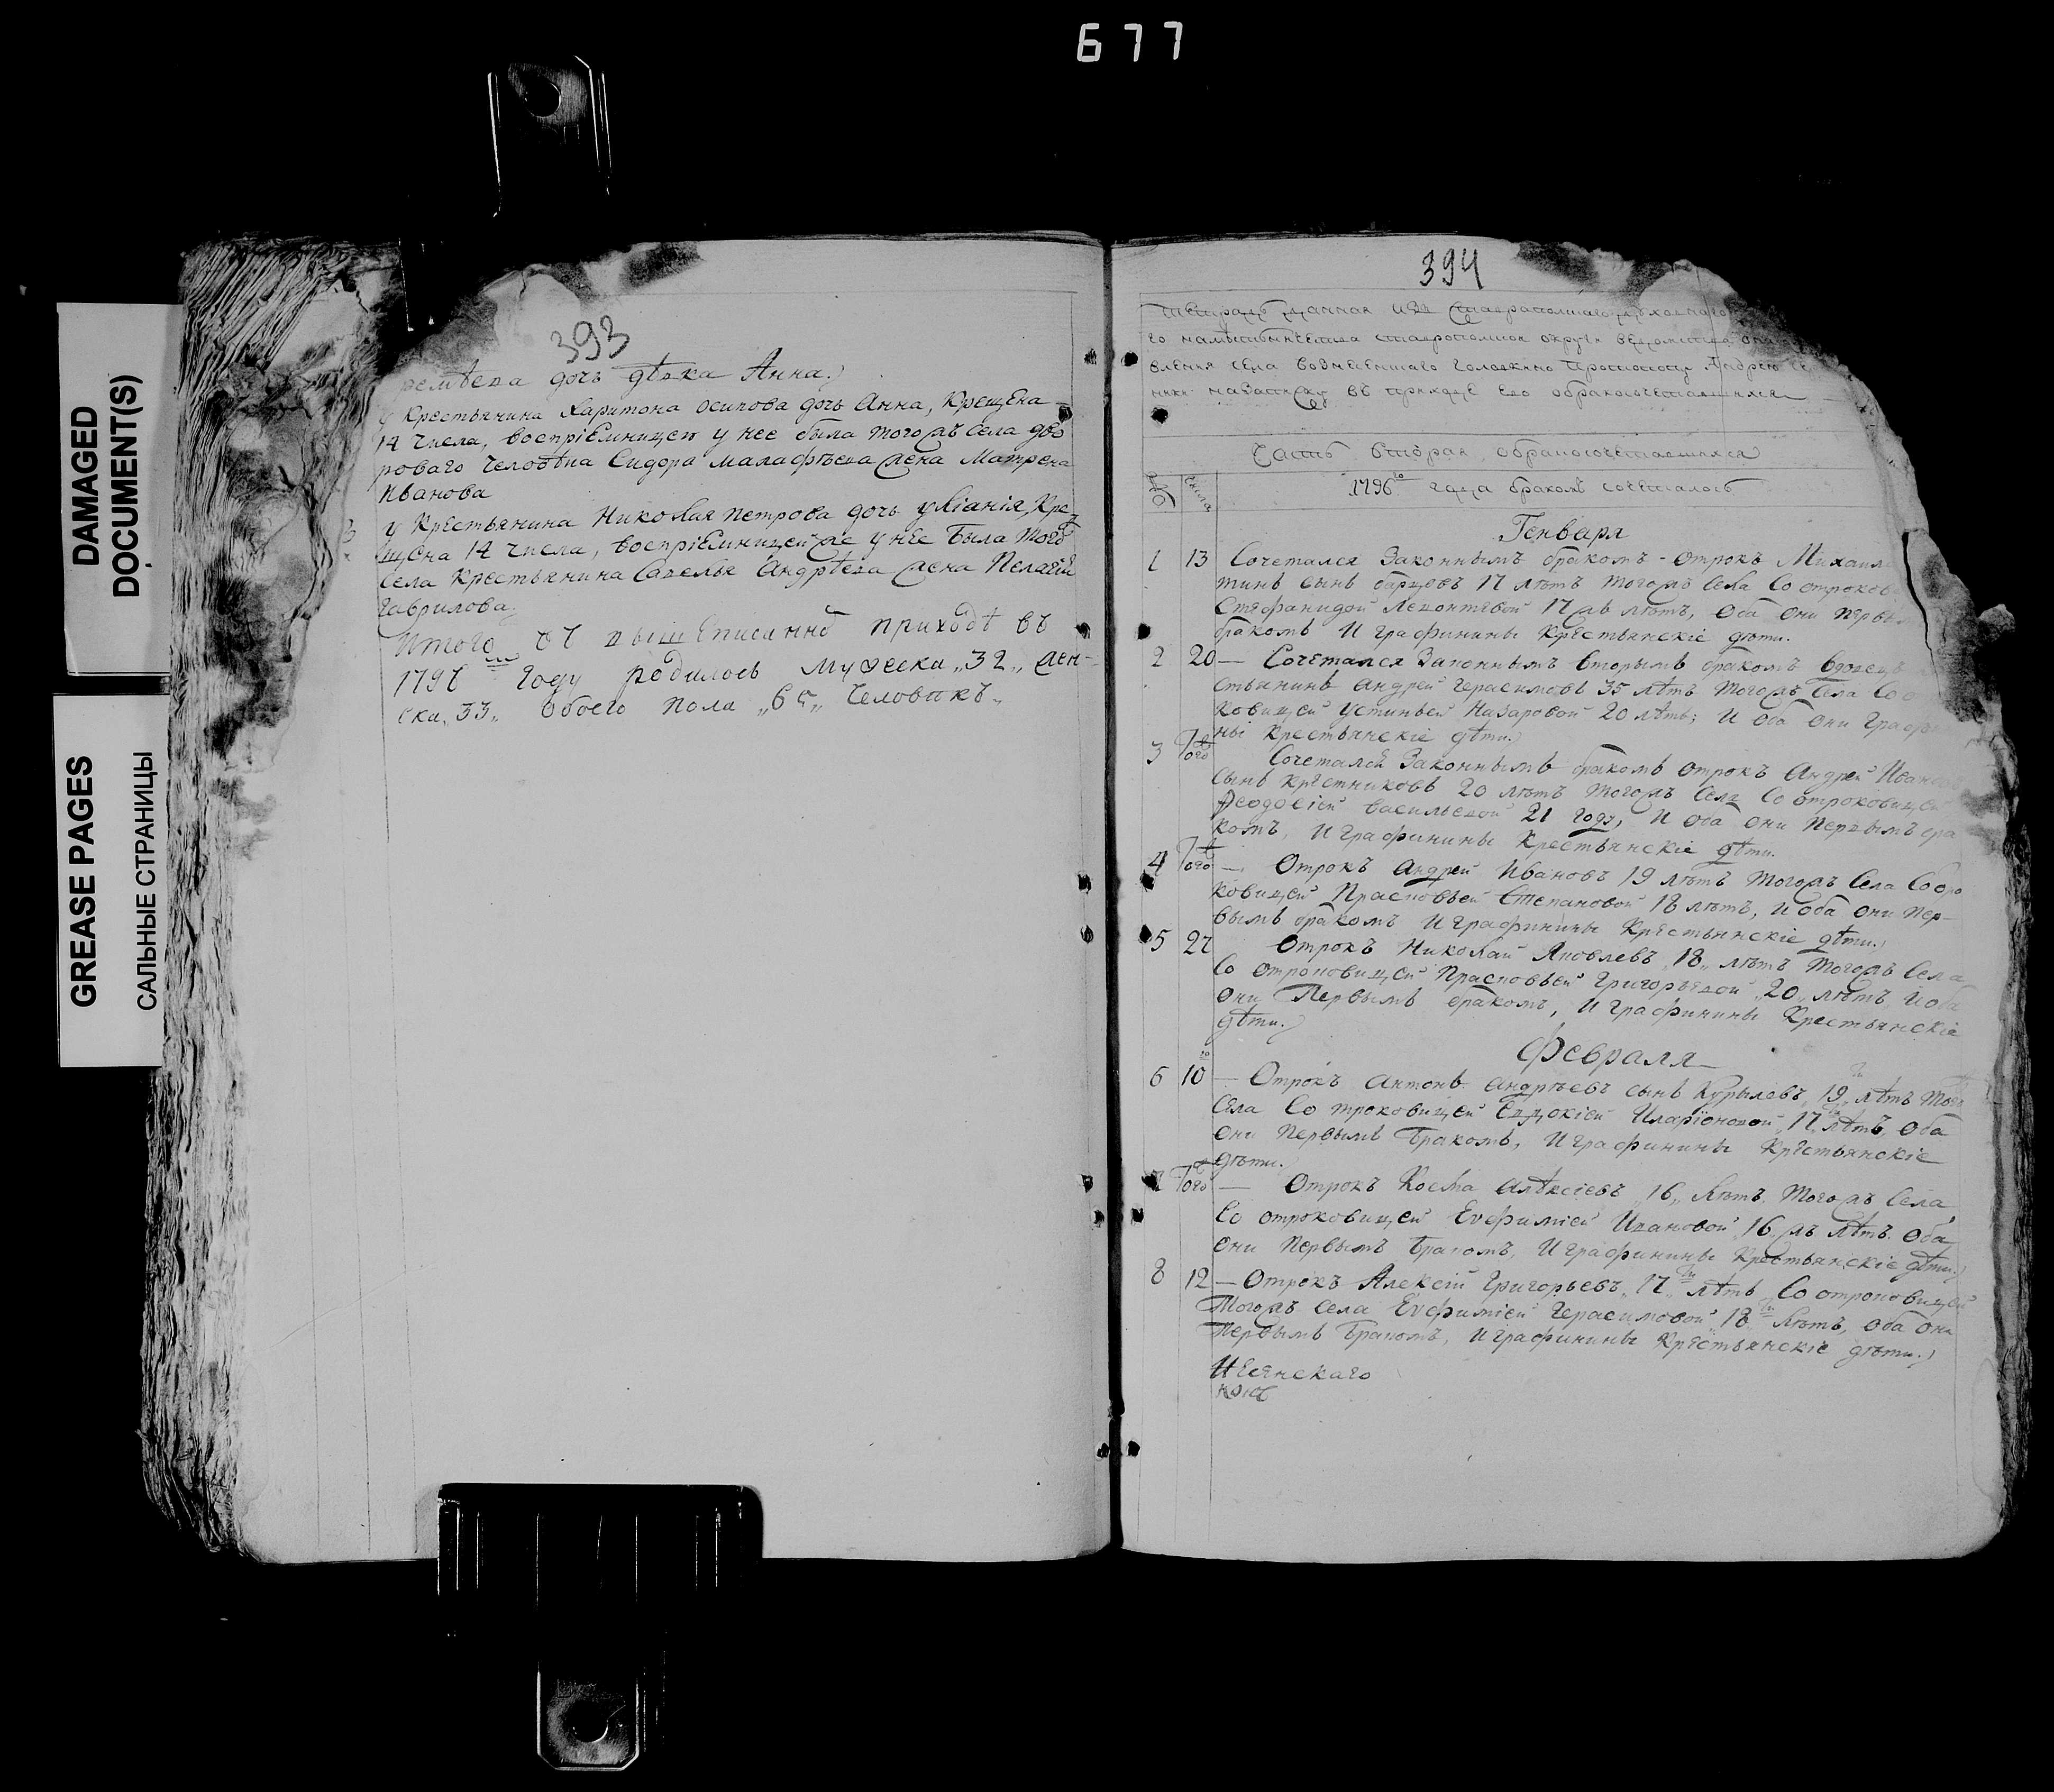 677
DAMAGED
DOCUMENT(S)
GREASE PAGES
САЛЬНЫЕ СТРАНИЦЫ
393
дочь дѣвка Анна.
у Крестьянина Харитона Осипова дочь Анна, Крещена
14 числа, воспріемницею у нее была тогожъ села дво
роваго человѣка Сидора Малафѣева жена Матрена
Иванова
у Крестьянина Николая Петрова дочь Уліанія, Кре
щена 14 числа, воспріемницей же у нее была тогожъ
села Крестьянина Савелья Андрѣева жена Пелагія
Гаврилова.
Итого въ вышеписанно приходѣ въ
году родилось мужеска „32„ жен-
ска „33„ обоего пола человѣкъ.
394
Тетрадь данная изъ Ставропольскаго духовнаго
го намѣстничества ставропольской округи
вления села вознесенскаго головкино Протопопу Андрею
на записку въ приходе его обракосочетавшихся
Часть вторая обракосочетавшихся
№ числа 1796го года бракомъ сочеталось
Генваря
1 13 Сочетался Законнымъ бракомъ - отрокъ Михаил
тинъ сынъ 17 лѣтъ тогожъ села со отроков
Стефанидой Леонтьевой 17 жъ лѣтъ, оба они первы
бракомъ И графинины Крестьянскіе дѣти.
2 20 — Сочетался Законнымъ вторымъ бракомъ вдовец
стьянинъ Андрей Герасимовъ 35 лѣтъ тогожъ села со от
ковицей Устиньей Назаровой 20 лѣтъ; И оба они графи
ны крестьянскіе дѣти.
3 того Сочетался Законнымъ бракомъ отрокъ Андрей Иванов
сынъ Крестниковъ 20 лѣтъ тогожъ села со отроковицей
Феодосіей Васильевой 21 году, И оба они первымъ бра
комъ, И графинины Крестьянскіе дѣти.
4 того — Отрокъ Андрей Ивановъ 19 лѣтъ тогожъ села
ковицей Прасковьей Степановой 18 лѣтъ, и оба они пер-
вымъ бракомъ И графинины Крестьянскіе дѣти.
5 27 Отрокъ Николай Яковлевъ „18„ лѣтъ тогожъ села
со отроковицей Прасковьей Григорьевой „20„ лѣтъ И оба
они первымъ бракомъ, И графинины Крестьянскіе
дѣти.
Февраля
6 10 — Отрокъ Антонъ Андрѣевъ сынъ Курылевъ, 19 лѣтъ того
села со троковицей Евдокіей Иларіоновой „17 лѣтъ, оба
они первымъ бракомъ, И графинины Крестьянскіе
дѣти.
7 того — Отрокъ Косма Алѣксіевъ „16„ лѣтъ тогожъ села
со отроковицей Евфиміей Ивановой „16 жъ лѣтъ оба
они первымъ бракомъ, И графинины Крестьянскіе дѣти.
8 12 — Отрокъ Алексій Григорьевъ „17„ лѣтъ со отроковицей
тогожъ села Евфиміей Герасимовой „18 лѣтъ, оба они
первымъ бракомъ, И графинины Крестьянскіе дѣти.